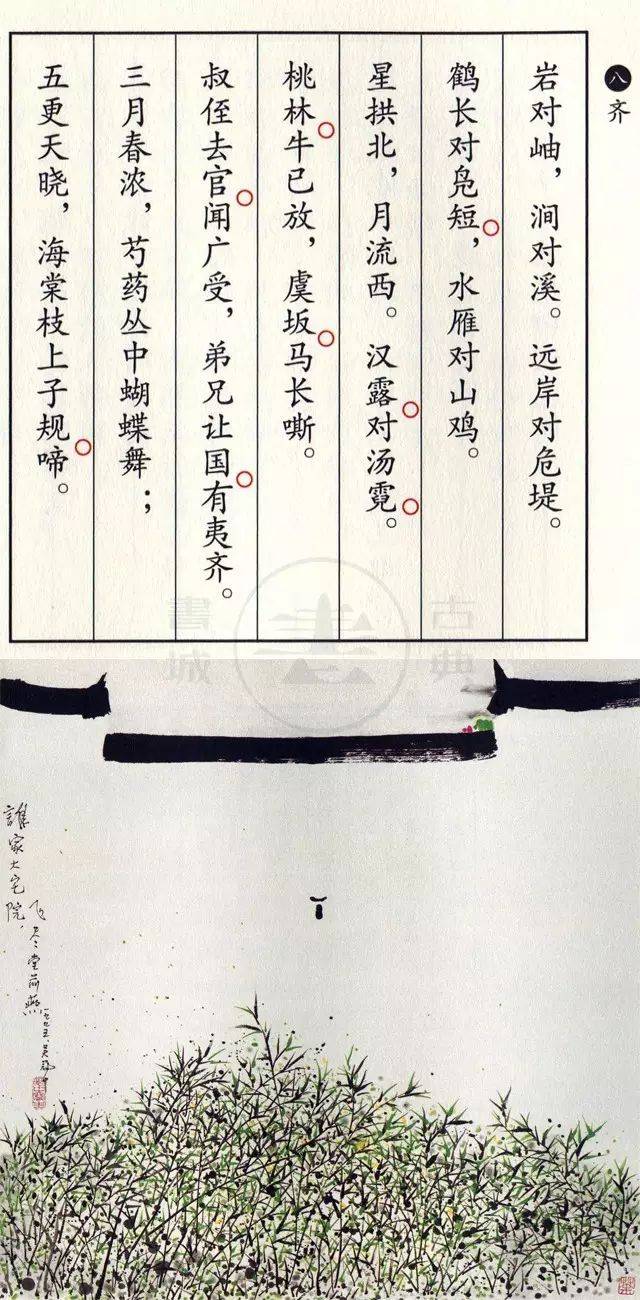 八 齐
岩对岫，涧对溪。远岸对危堤。
鹤长对凫短，水雁对山鸡。
星拱北，月流西。汉露对汤霓。
桃林牛已放，虞坂马长嘶。
叔侄去官闻广受，弟兄让国有夷齐。
三月春浓，芍药丛中蝴蝶舞；
五更天晓，海棠枝上子规啼。
古典
書城
誰家大宅院，
飞尽堂前燕
一九九五、吴